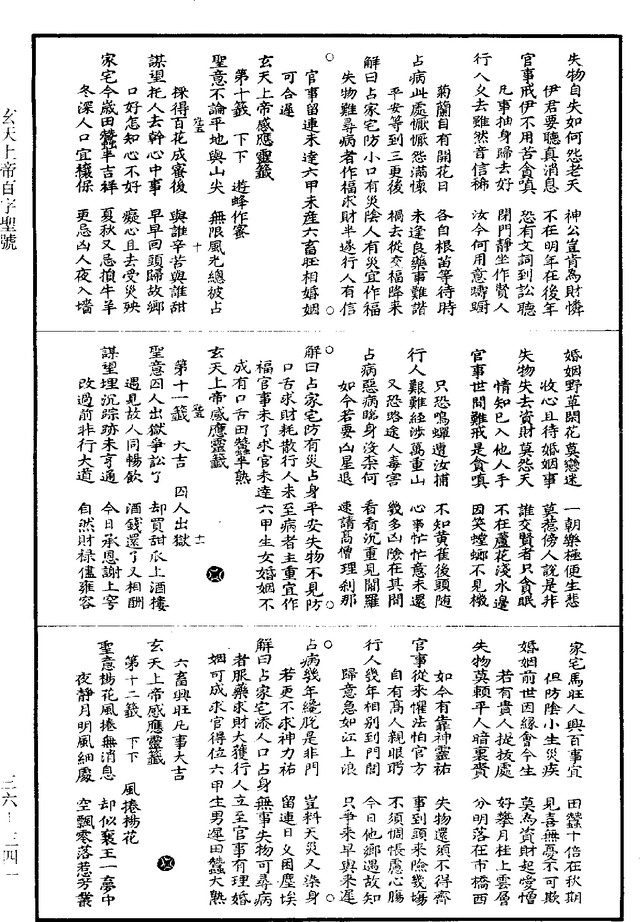 失物自失如何怨老天　神公豈肯爲財憐
伊君要聽真消息　不在明年在後年
官事戒伊不用苦貪嗔　恐有文詞到訟聽
凡事抽身歸去好　閉門靜坐作賢人
行人久去雖然音信稀　汝今何用意躊躕
菊蘭自有開花日　各自根苗等待時
占病此處懨懨怨滿懷　未逢良藥事難諧
平安等到三更後　禍去從交福降來
解曰占家宅防小口有災陰人有災宜作福
失物難尋病者作福求財半遂行人有信
○
官事留連未達六甲未產六畜旺相婚姻
可合遲
玄天上帝感應靈籤
第十籤　下下　遊蜂作蜜
聖意不論平地與山尖　無限風光總被占
採得百花成蜜後　與誰辛苦與誰甜
謀望托人去幹心中事　早早回頭歸故鄉
口好怎知心不好　癡心且去受災殃
家宅今歲田蠶半吉祥　夏秋又忌損牛羊
冬深人口宜禳保　更忌凶人夜入墻
婚姻野草閑花莫戀迷　一朝樂極便生悲
收心且待婚姻事　莫惹傍人說是非
失物失去資財莫怨天　誰交賢者只貪眠
情知已入他人手　不在蘆花淺水邊
官事世間難戒是貪嗔　因笑螳螂不見機
只恐鳴蟬遭汝捕　不知黃雀後頭隨
行人艱難經涉萬重山　心事忙忙意未還
又恐路途人毒害　幾多凶險在其間
占病惡病眈身沒柰何　看看沉重見閻羅
如今若要凶星退　速請高僧理刹那
○
解曰占家宅防有災占身平安失物不見防
口舌求財耗散行人未至病者主重宜作
福官事未了求官未達六甲生女婚姻不
成有口舌田蠶半熟
玄天上帝感應靈籤
第十一籤　大吉　囚人出獄
聖意囚人出獄爭訟了　却買甜瓜上酒樓
遇見故人同暢飲　酒錢還了又相酬
謀望埋沉踪跡未亨通　今日承恩謝上穹
改過前非行大道　自然財祿儘雍容
家宅馬旺人興百事宜　田蠶十倍在秋期
但防陰小生災疾　見喜無憂不可欺
婚姻前世因緣會今生　莫爲資財起愛憎
若有貴人提拔處　好攀月桂上雲層
失物莫賴平人暗裏賫　分明落在市橋西
如今有靠神靈祐　失物還須不得齊
官事從來懼法怕官方　事到頭來險幾場
自有高人親眼盻　不須惆悵慮心腸
行人幾年相別到門閭　今日他鄉遇故知
歸意急如江上浪　只爭來早與來遲
○
占病幾年纔脫是非門　豈料天災又染身
若更不求神力祐　留連日久困塵埃
解曰占家宅添人口占身無事失物可尋病
者服藥求財大獲行人立至官事有理婚
姻可成求官得位六甲生男遲田蠶大熟
六畜興旺凡事大吉
玄天上帝感應靈籤
第十二籤　下下　風捲楊花
聖意楊花風捲無消息　却似襄王一夢中
夜靜月明風細處　空飄零落惹芳叢
玄天上帝百字聖號
三六—三四一